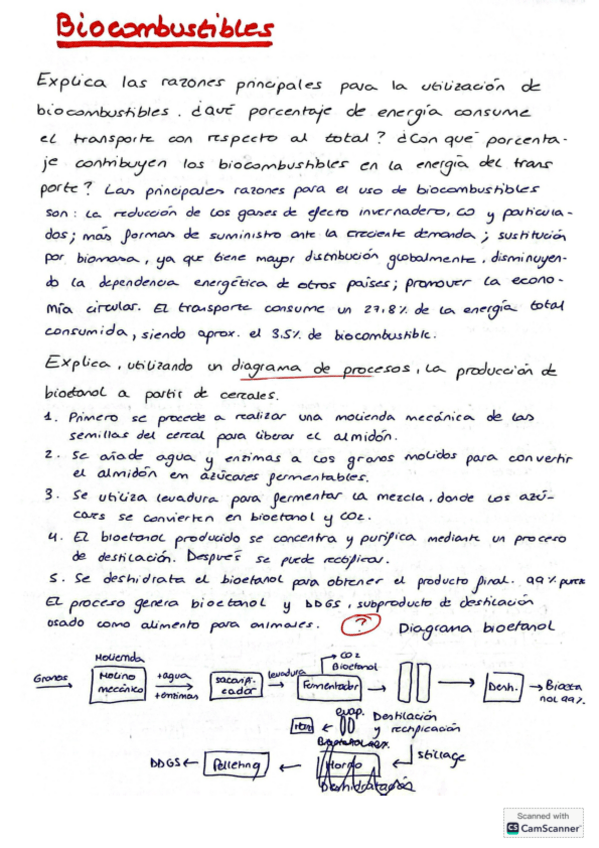 Biocombustibles
Explica las razones principales para la utilización de
biocombustibles. ¿Qué porcentaje de energía consume
el transporte con respecto al total? ¿Con qué porcenta-
je contribuyen los biocombustibles en la energía del trans
porte? Las principales razones para el uso de biocombustibles
son: La reducción de los gases de efecto invernadero, CO y particula-
dos; más formas de suministro ante la creciente demanda; sustitución
por biomasa, ya que tiene mayor distribución globalmente, disminuyen-
do la dependencia energética de otros países; promover la econo-
mía circular. El transporte consume un 27,8% de la energía total
consumida, siendo aprox. el 3.5% de biocombustible.
Explica, utilizando un diagrama de procesos, la producción de
bioetanol a partir de cereales.
1. Primero se procede a realizar una molienda mecánica de las
semillas del cereal para liberar el almidón.
2. Se añade agua y enzimas a los granos molidos para convertir
el almidón en azúcares fermentables.
3. Se utiliza levadura para fermentar la mezcla, donde los azú-
cares se convierten en bioetanol y CO2.
4. El bioetanol producido se concentra y purifica mediante un proceso
de destilación. Después se puede rectificar.
5. Se deshidrata el bioetanol para obtener el producto final. 99% pureza
El proceso genera bioetanol y DDGS, subproducto de destilación
usado como alimento para animales. ? Diagrama bioetanol
Molienda
Granos
Molino
mecánico
+agua
+enzimas
sacarifi-
cador
levadura
CO2
Bioetanol
Fermentador
Desh.
Bioeta
nol 99%
evap.
Destilación
y rectificación
stillage
Horno
Deshidratación
Pelleting
DDGS
Scanned with
CS CamScanner